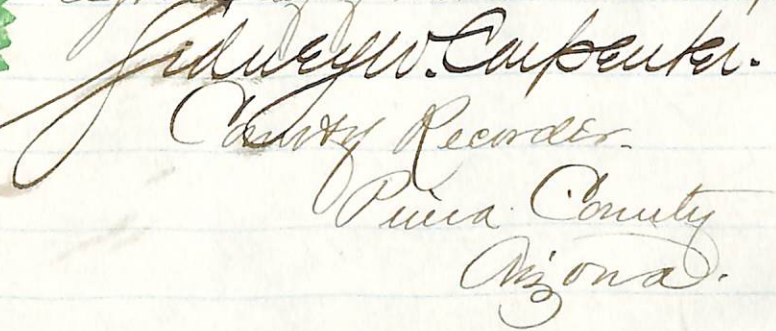 Sidney W. Carpenter.
County Recorder.
Pima County
Arizona.